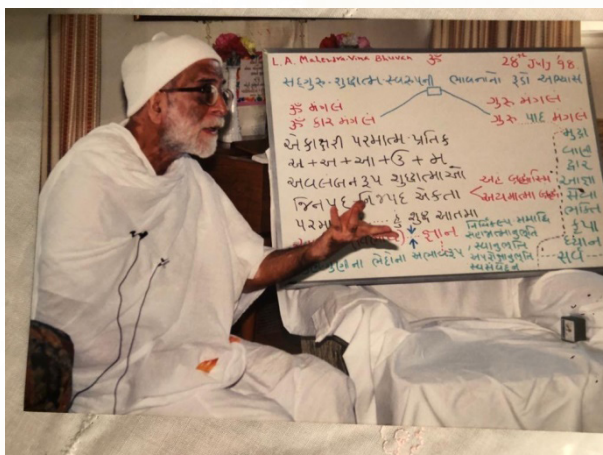 L. A. Mahendra-Vina Bhuvan ૐ 28th July 98.
સદ્ગુરુ-શુદ્ધાત્મ સ્વરૂપની ભાવનાનો રૂડો અભ્યાસ
ૐ મંગલં
ૐ કાર મંગલં
ગુરુ મંગલં
ગુરુ પાદ મંગલં
એકાક્ષરી પરમાત્મ પ્રતિક
અ + અ + આ + ઉ + મ
અવલંબનરૂપ શુદ્ધાત્માઓ
જિનપદ નિજપદ એકતા
અહં બ્રહ્માસ્મિ
અયમાત્મા બ્રહ્મ
હું શુદ્ધ આતમા
જ્ઞાન
નિર્વિકલ્પ સમાધિ
સહજાત્માનુભૂતિ
, સ્વાનુભૂતિ
અપરોક્ષાનુભૂતિ
સ્વસંવેદન
ના ભેદોના અભાવરૂપ
મુદ્રા
દ્વાર
આજ્ઞા
ભક્તિ
કૃપા
ધ્યાન
સર્વ